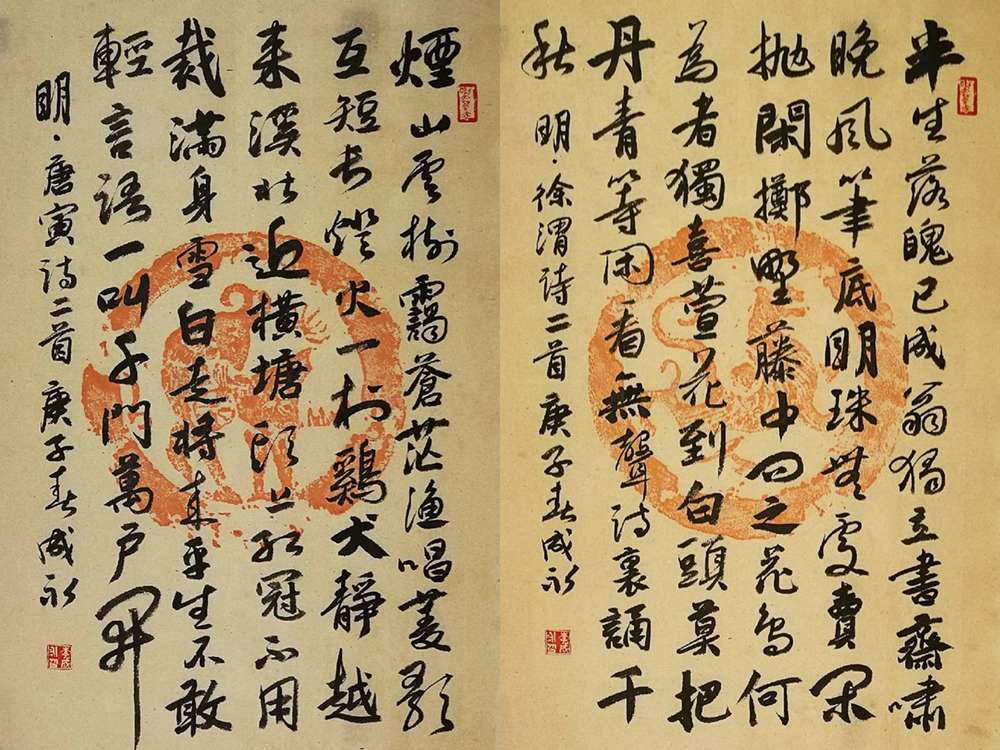 半生落魄已成翁獨立書齋嘯
晚風筆底明珠無處賣閑
拋閑擲野藤中曰之花鳥何
為者獨喜萱花到白頭莫把
丹青等閑看無聲詩裏誦千
秋
明·徐渭詩二首庚子春成永
煙山雲樹靄蒼茫漁唱菱歌
互短長燈火一村鷄犬靜越
來溪北近橫塘頭上紅冠不用
裁滿身雪白走將來平生不敢
輕言語一叫千門萬戶開
明·唐寅詩二首庚子春成永